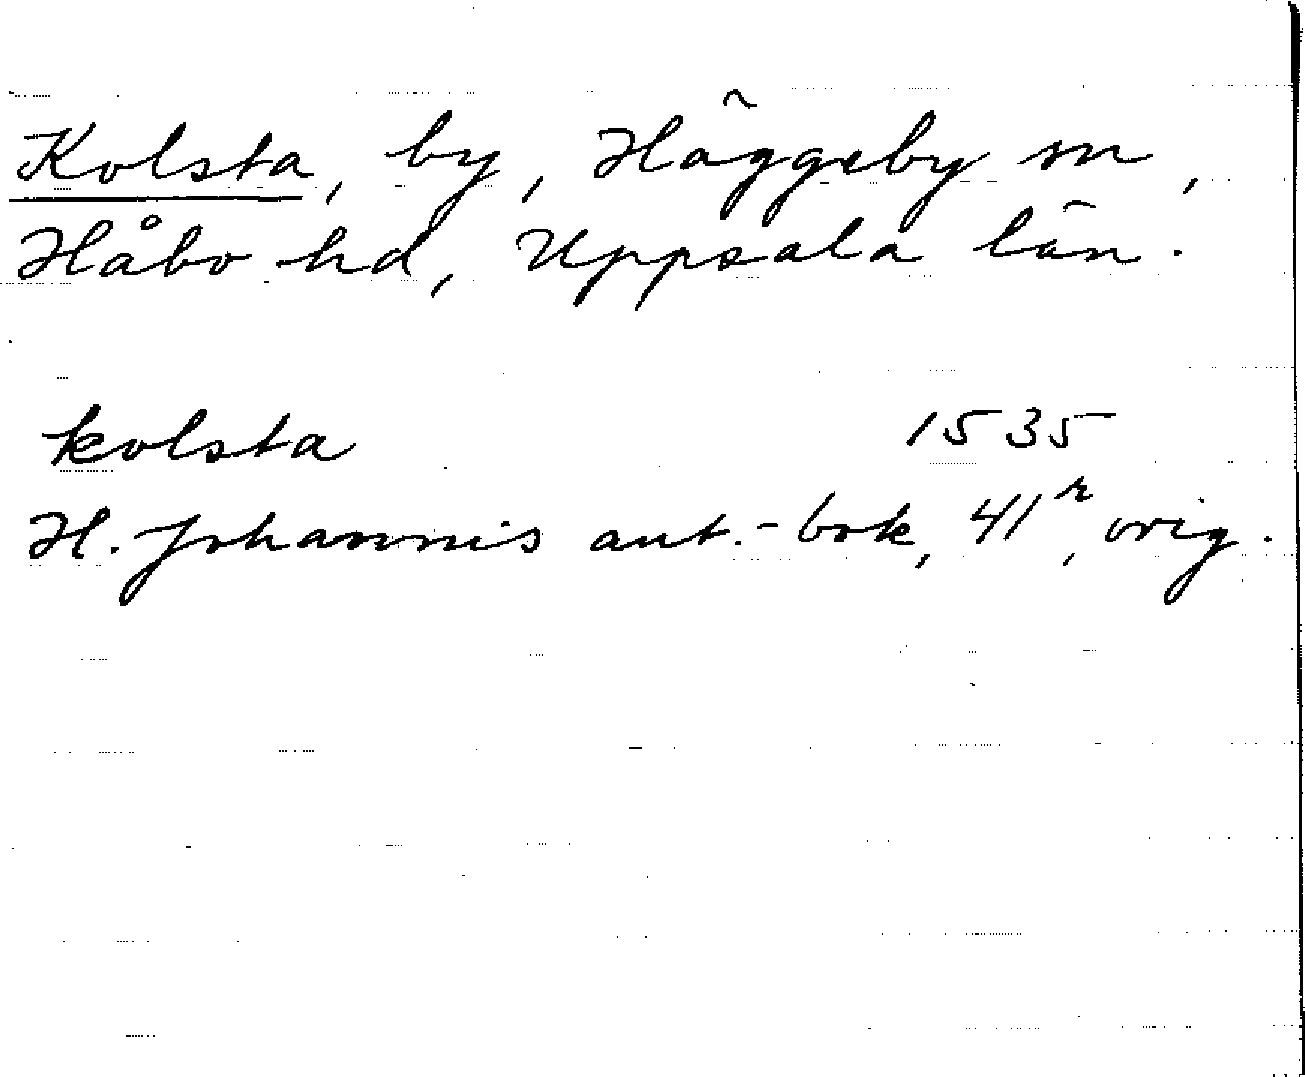 Kolsta, by, Häggeby sn,
Håbo hd, Uppsala län.
kolsta 1535
H. Johannis ant.-bok, 41r, orig.